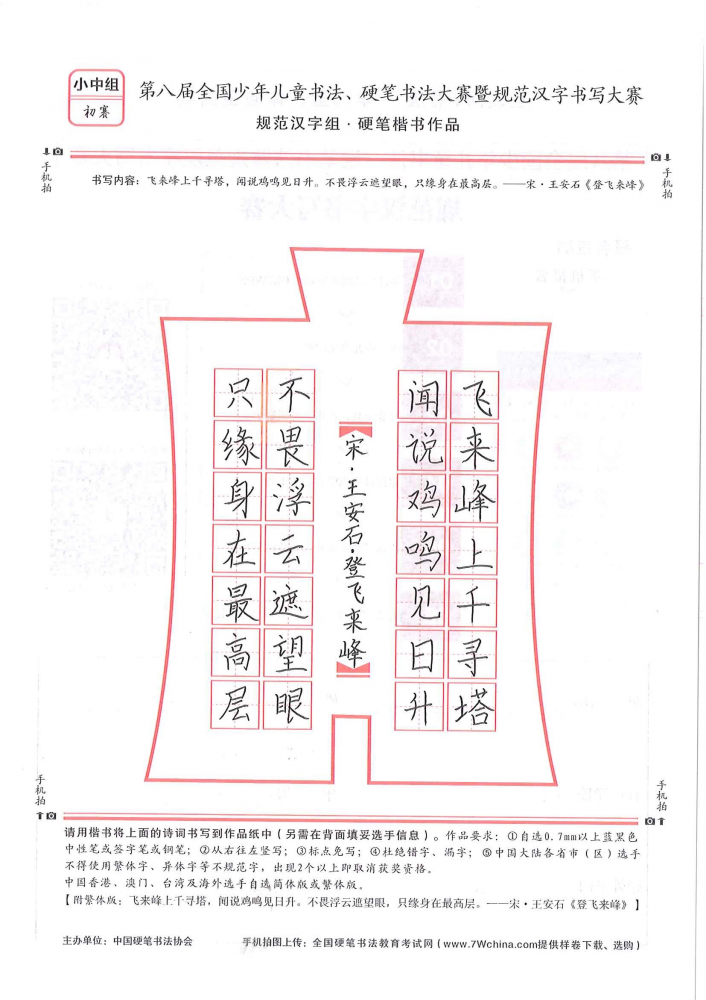 小中组
初赛
第八届全国少年儿童书法、硬笔书法大赛暨规范汉字书写大赛
规范汉字组·硬笔楷书作品
手机拍
手机拍
书写内容：飞来峰上千寻塔，闻说鸡鸣见日升。不畏浮云遮望眼，只缘身在最高层。——宋·王安石《登飞来峰》
飞来峰上千寻塔
闻说鸡鸣见日升
宋·王安石·登飞来峰
不畏浮云遮望眼
只缘身在最高层
手机拍
手机拍
请用楷书将上面的诗词书写到作品纸中（另需在背面填妥选手信息）。作品要求：①自选0.7mm以上蓝黑色
中性笔或签字笔或钢笔；②从右往左竖写；③标点免写；④杜绝错字、漏字；⑤中国大陆各省市（区）选手
不得使用繁体字、异体字等不规范字，出现2个以上即取消获奖资格。
中国香港、澳门、台湾及海外选手自选简体版或繁体版。
【附繁体版：飞来峰上千寻塔，闻说鸡鸣见日升。不畏浮云遮望眼，只缘身在最高层。——宋·王安石《登飞来峰》】
主办单位：中国硬笔书法协会
手机拍图上传：全国硬笔书法教育考试网（www.7Wchina.com提供样卷下载、选购）